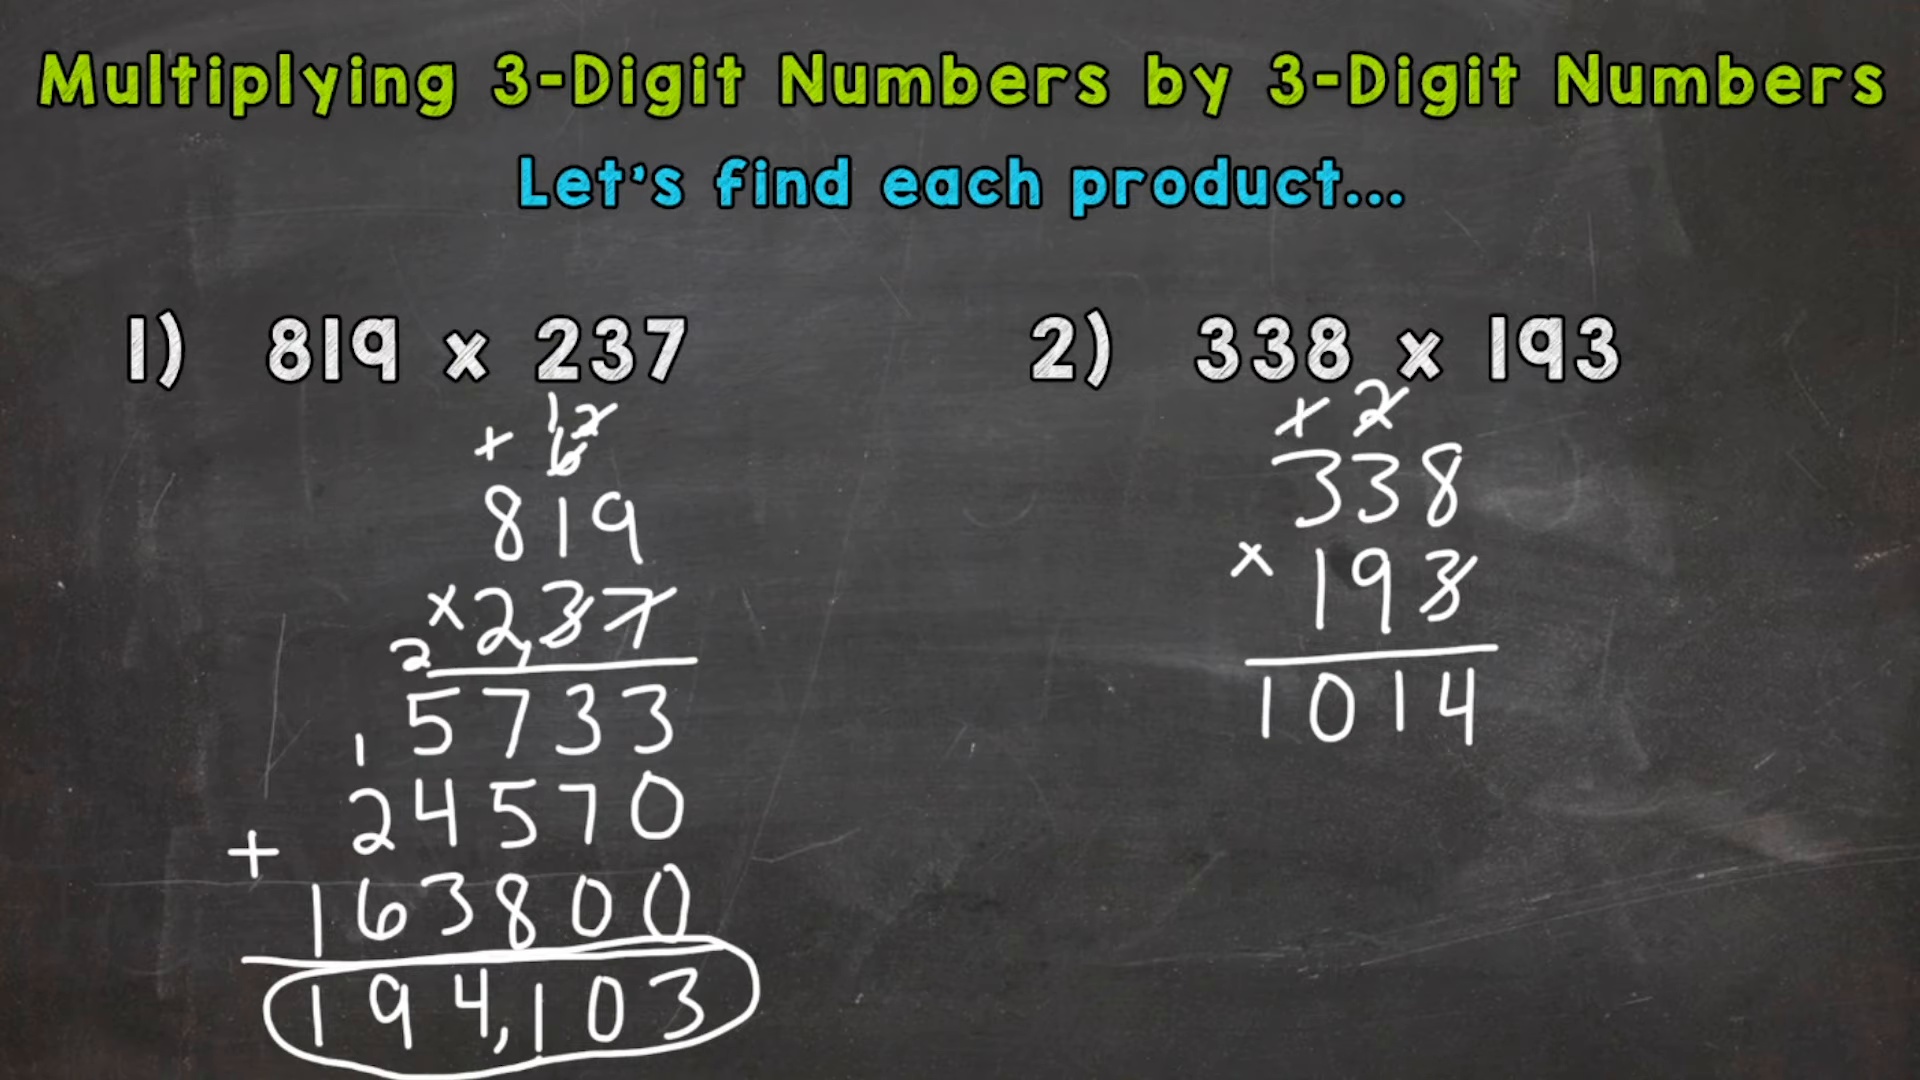 Multiplying 3-Digit Numbers by 3-Digit Numbers
Let's find each product...
1) 819 x 237
1 2
+ 6
819
x 2,37
2
5733
1
24570
+
163800
194,103
2) 338 x 193
+ 2
338
x 193
1014